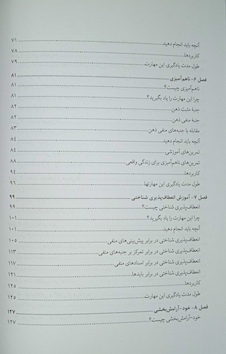 آنچه باید انجام دهید ۷۱
کاربردها ۷۸
طول مدت یادگیری این مهارت ۷۹
فصل ۶- ناهم‌آمیزی ۸۱
ناهم‌آمیزی چیست؟ ۸۱
چرا این مهارت را یاد بگیرید؟ ۸۱
جنبهٔ مثبت ذهن ۸۲
جنبهٔ منفی ذهن ۸۲
مقابله با جنبه‌های منفی ذهن ۸۳
آنچه باید انجام دهید ۸۴
تمرین‌های آموزشی ۸۴
تمرین‌های ناهم‌آمیزی برای زندگی واقعی ۸۸
کاربردها ۹۴
طول مدت یادگیری این مهارتها ۹۶
فصل ۷- آموزش انعطاف‌پذیری شناختی ۹۹
انعطاف‌پذیری شناختی چیست؟ ۹۹
چرا این مهارت را یاد بگیرید؟ ۱۰۱
آنچه باید انجام دهید ۱۰۴
انعطاف‌پذیری شناختی در برابر پیش‌بینی‌های منفی ۱۰۵
انعطاف‌پذیری شناختی در برابر تمرکز بر جنبه‌های منفی
انعطاف‌پذیری شناختی در برابر اسنادهای منفی ۱۱۷
انعطاف‌پذیری شناختی در برابر بایدها ۱۲۱
کاربردها ۱۲۵
طول مدت یادگیری این مهارت ۱۲۵
فصل ۸- خود-آرامش‌بخشی ۱۲۷
خود-آرامش‌بخشی چیست؟ ۱۲۷